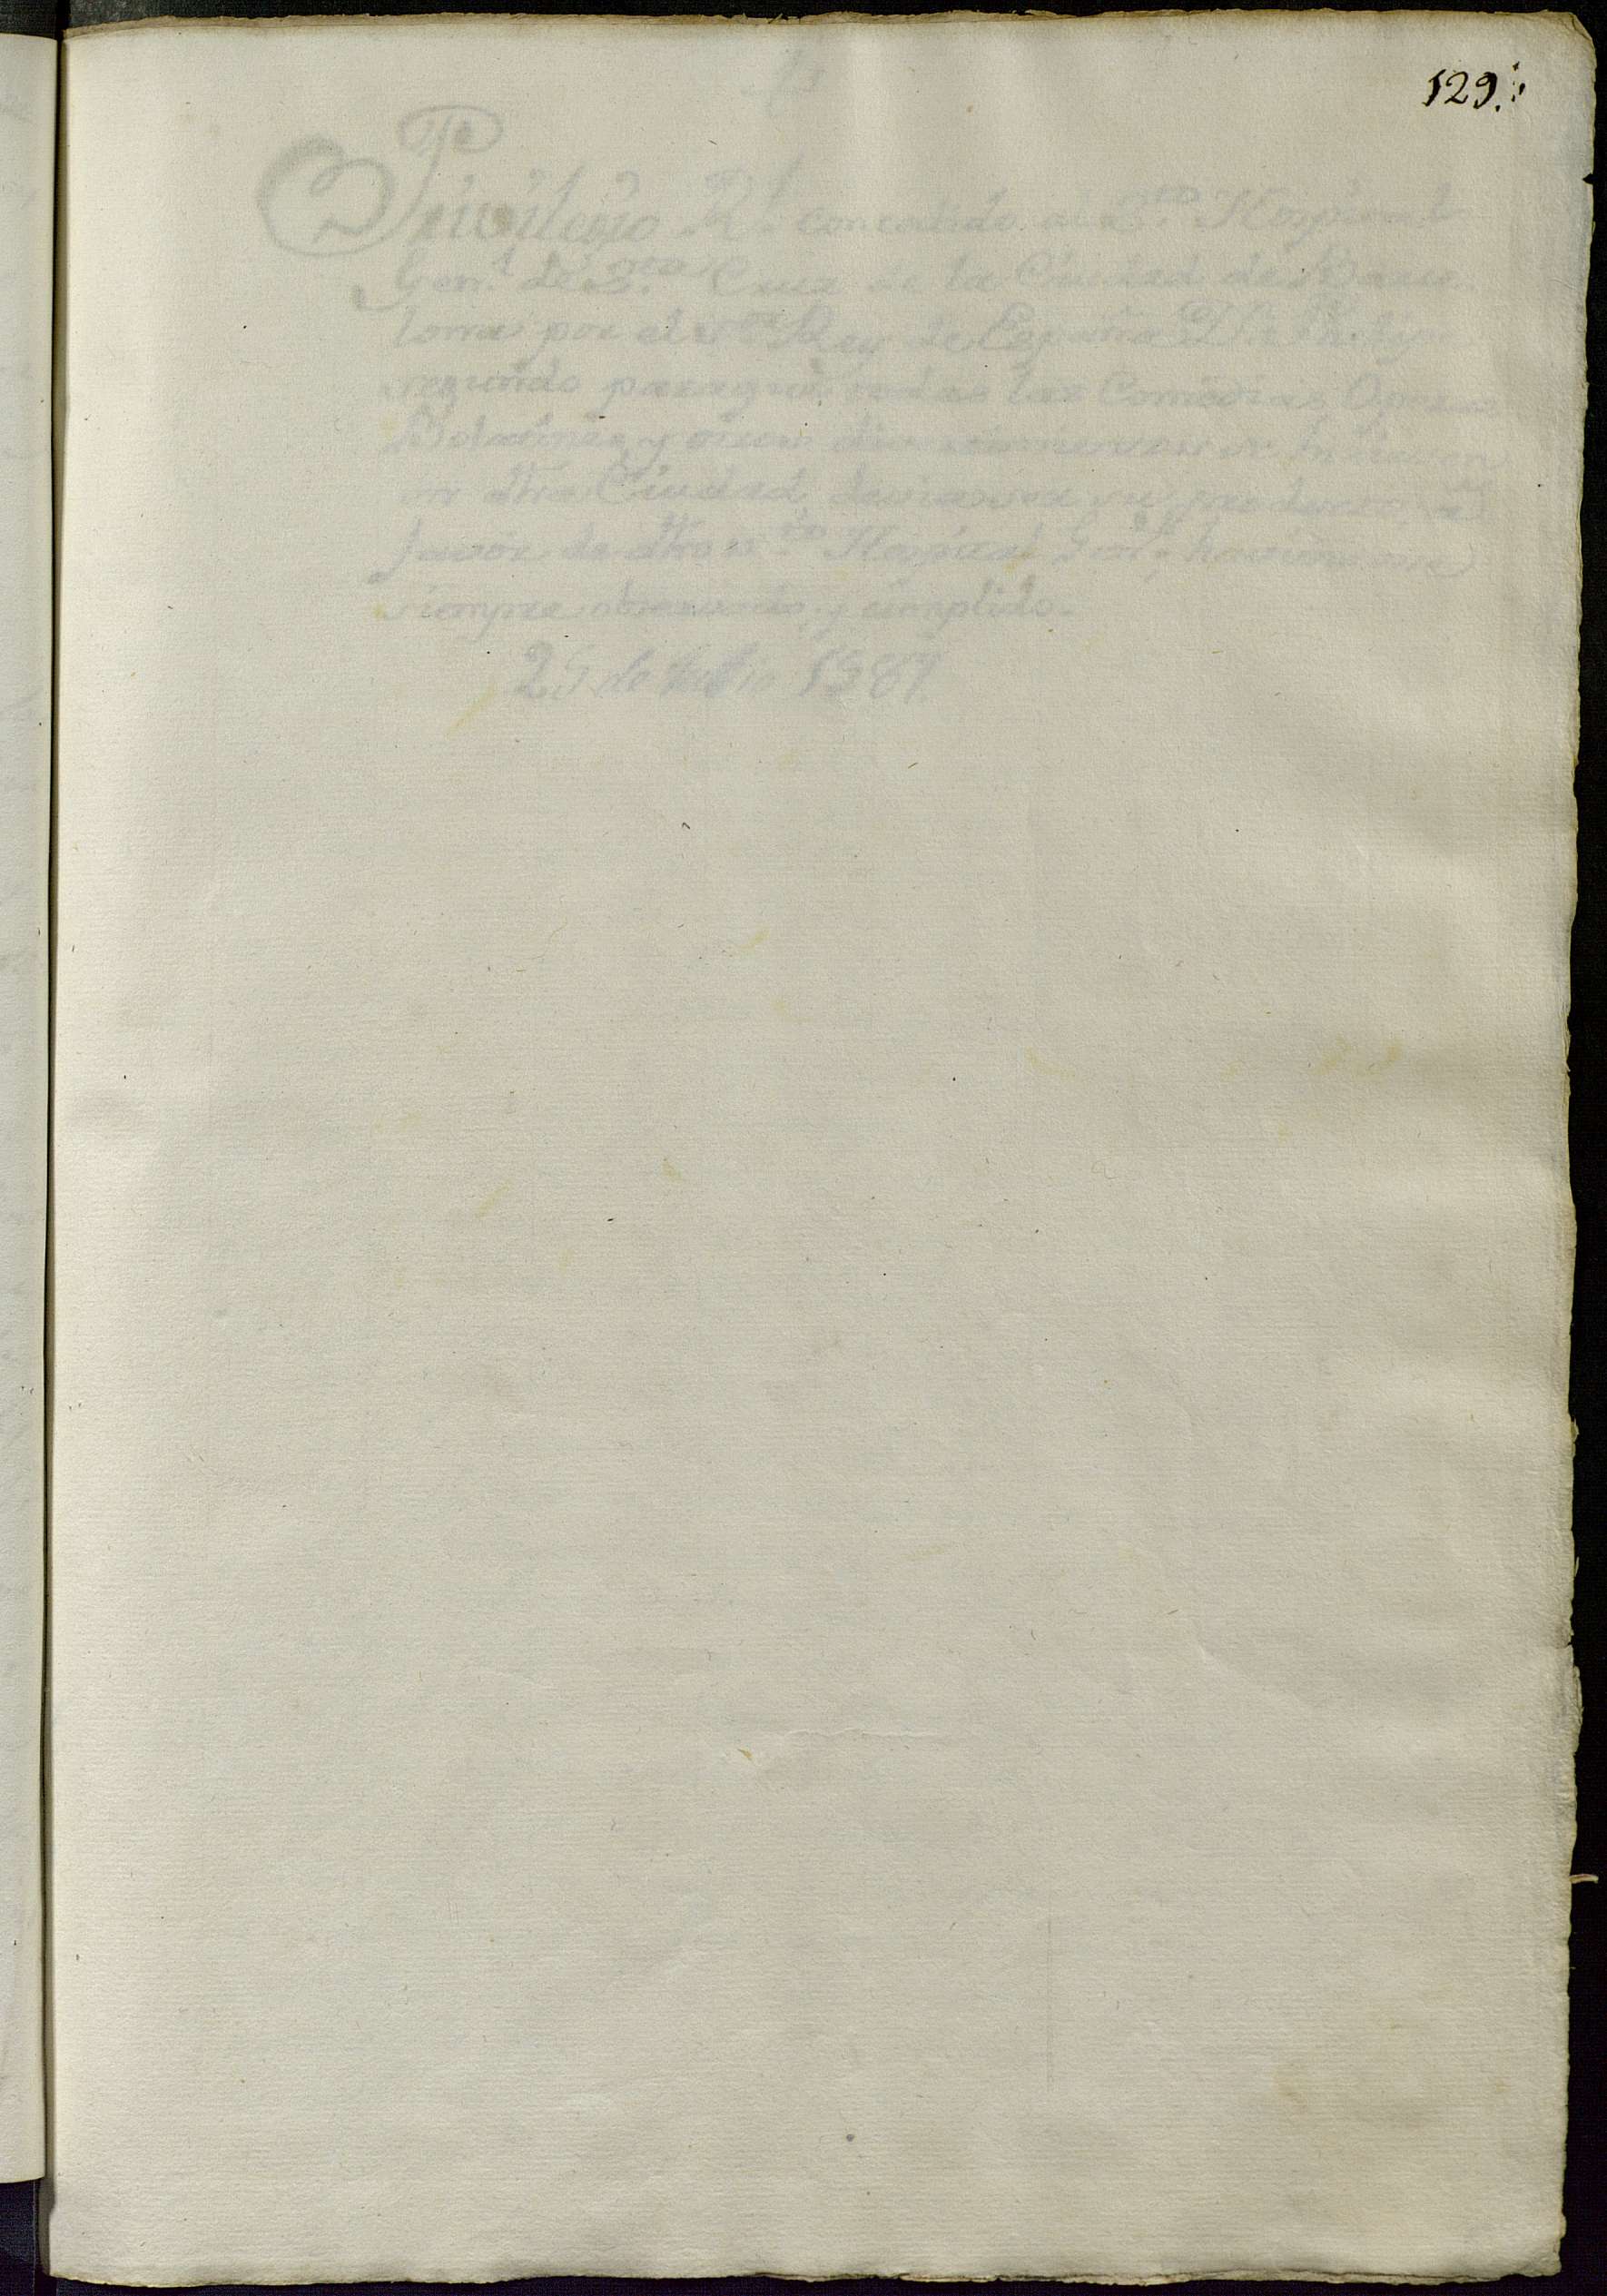 129.
Privilegio Rl. concedido al Sto. Hospital
Genl. de Sta. Cruz de la Ciudad de Barce
lona por el Rey de España Dn. Phelipe
segundo paraque todas las Comedias, Operas
Bolatines, y otros divertimientos se hiciesen
en dha Ciudad, su producto, a
favor de dho sto. Hospital Genl., haviendose
siempre observado, y cumplido.
25 de Julio 1587